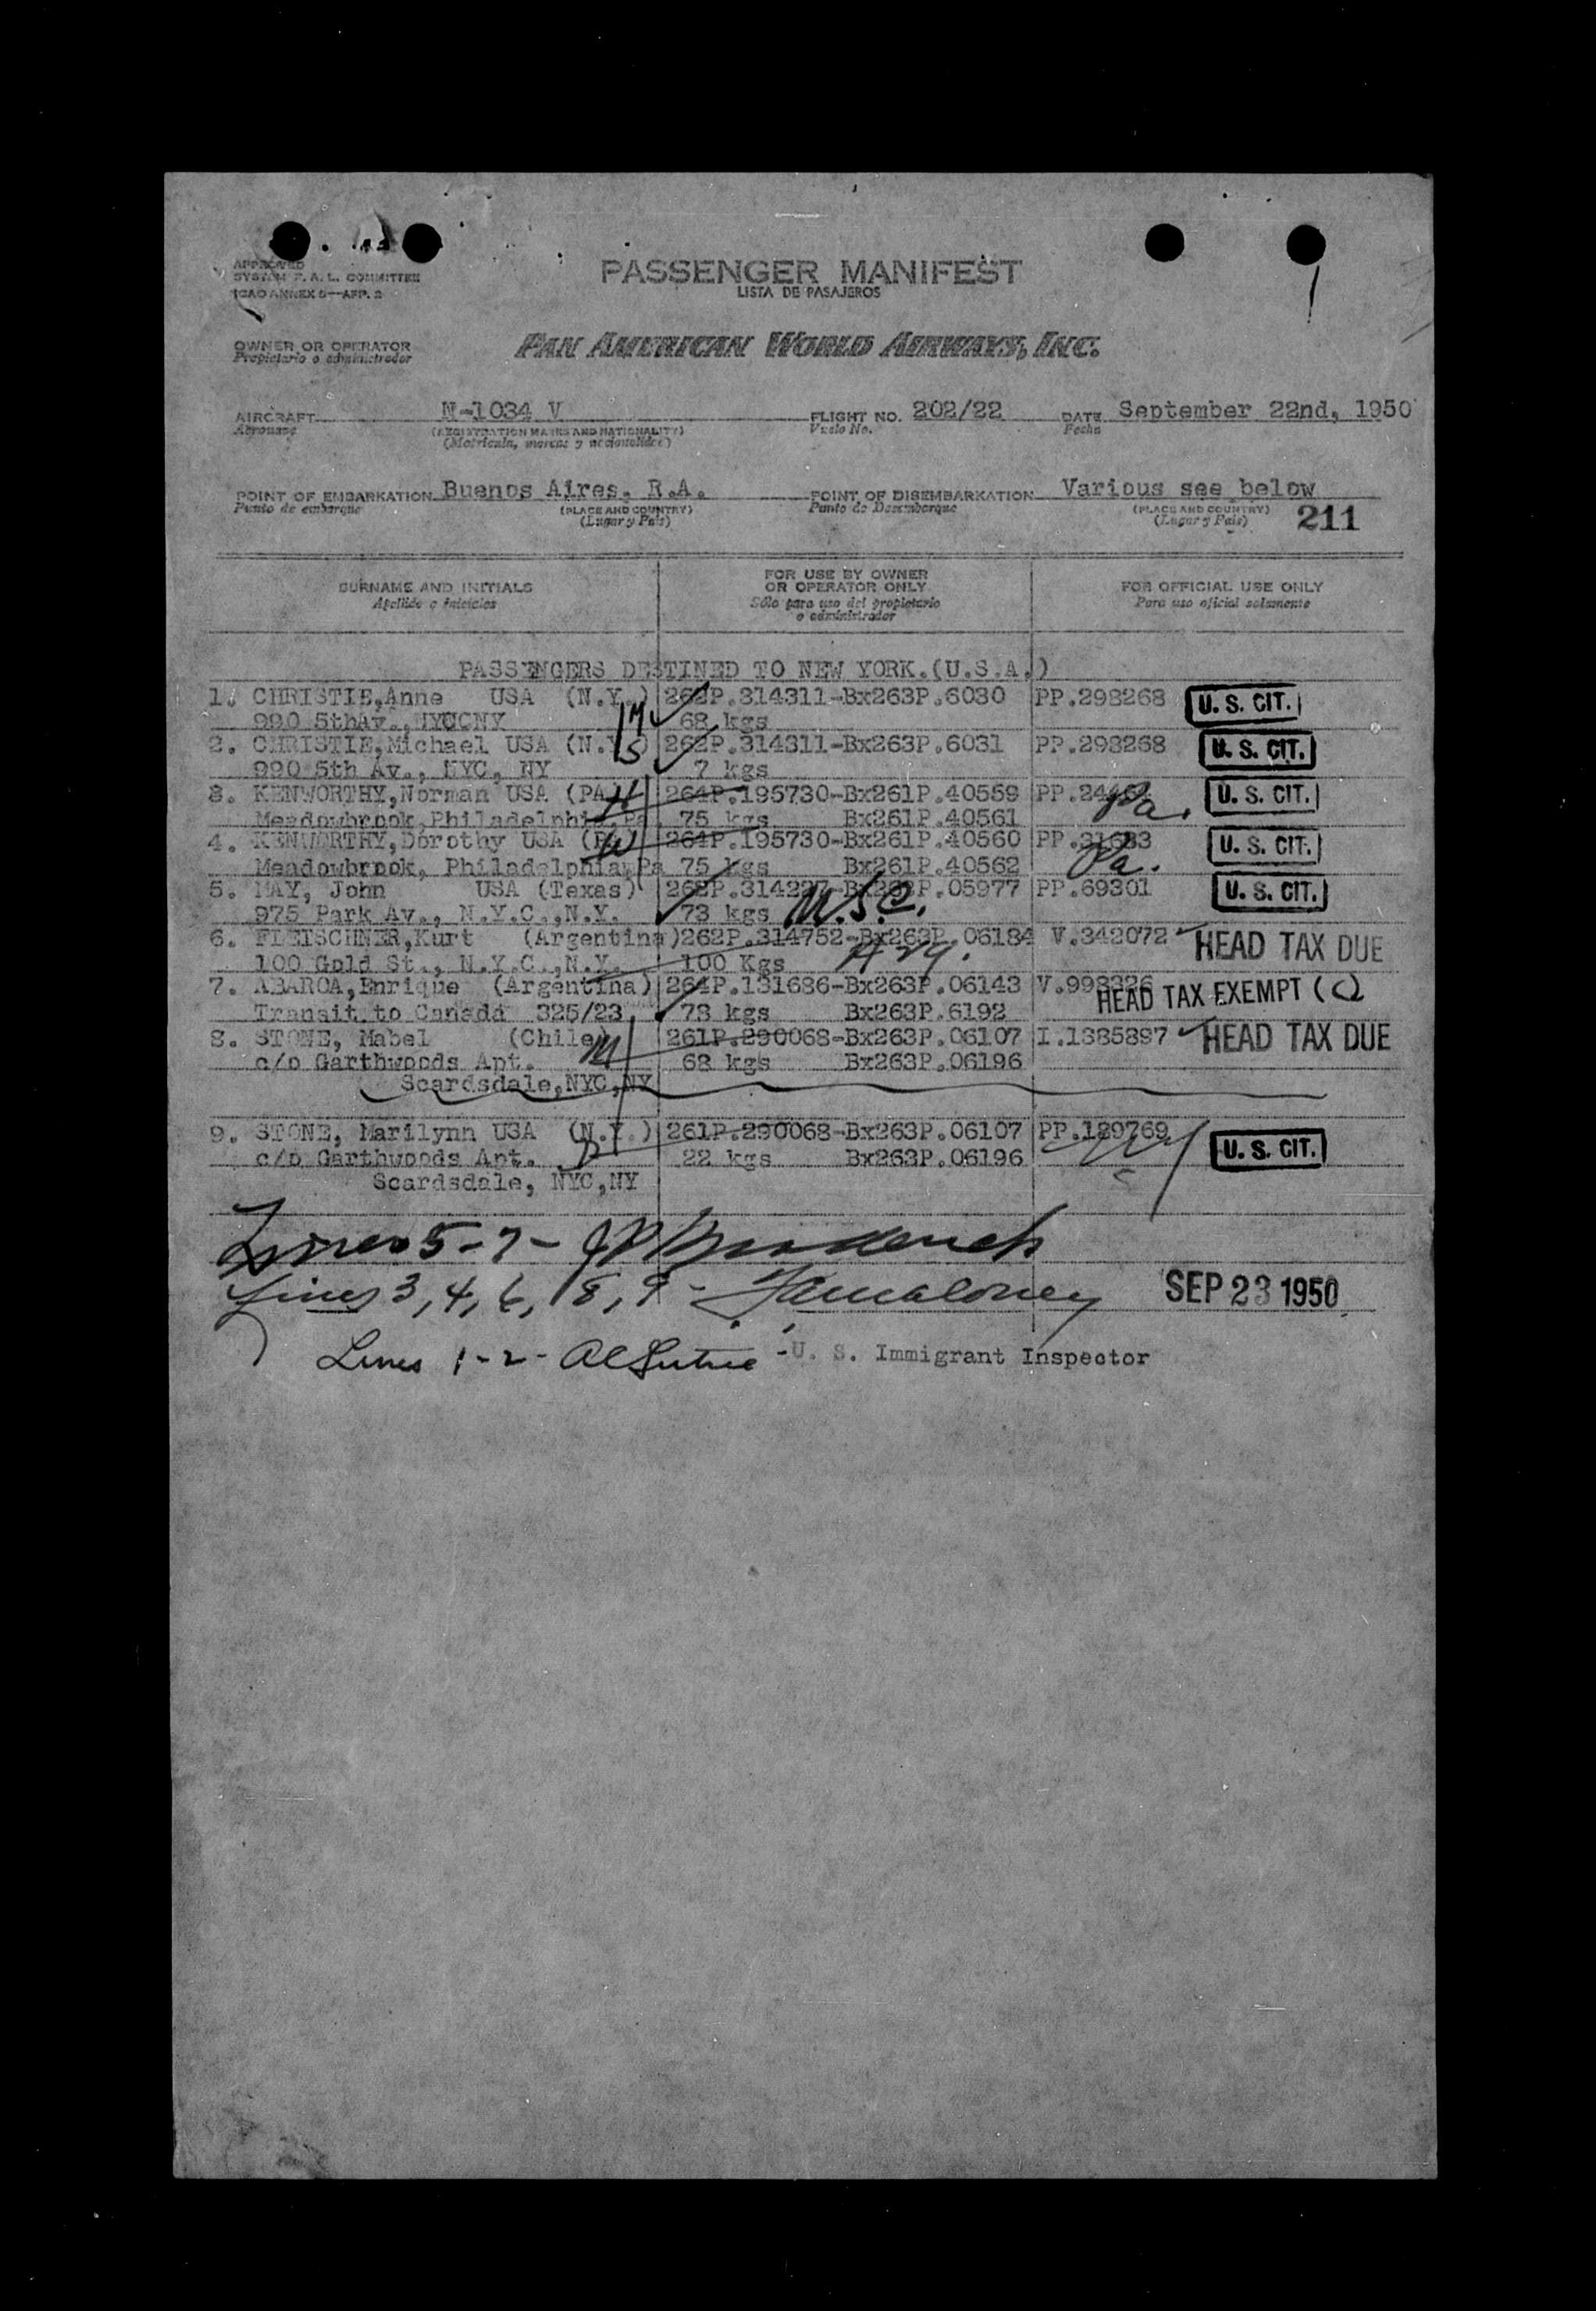 APPROVED
SYSTEM F. A. L. COMMITTEE
ICAO ANNEX 9—APP. 2
PASSENGER MANIFEST
LISTA DE PASAJEROS
OWNER OR OPERATOR
Propietario o administrador
PAN AMERICAN WORLD AIRWAYS, INC.
AIRCRAFT N-1034 V FLIGHT NO. 202/22 DATE September 22nd, 1950
Aeronave (REGISTRATION MARKS AND NATIONALITY) Vuelo No. Fecha
(Matricula, marcas y nacionalidad)
POINT OF EMBARKATION Buenos Aires, R.A. POINT OF DISEMBARKATION Various see below
Punto de embarque (PLACE AND COUNTRY) Punto de Desembarque (PLACE AND COUNTRY)
(Lugar y País) (Lugar y País) 211
SURNAME AND INITIALS FOR USE BY OWNER OR OPERATOR ONLY FOR OFFICIAL USE ONLY
Apellido e iniciales Sólo para uso del propietario o administrador Para uso oficial solamente
PASSENGERS DESTINED TO NEW YORK.(U.S.A.)
1. CHRISTIE,Anne USA (N.Y.) 262P.314311-Bx263P.6030 PP.298268 U. S. CIT.
990 5thAv., NYCCNY M 68 kgs
2. CHRISTIE,Michael USA (N.Y.) S 262P.314311-Bx263P.6031 PP.298268 U. S. CIT.
990 5th Av., NYC, NY 7 kgs
3. KENWORTHY,Norman USA (PA) H 264P.195730-Bx261P.40559 Pa. U. S. CIT.
Meadowbrook,Philadelphia,Pa. 75 kgs Bx261P.40561
4. KENWORTHY,Dorothy USA (PA) W 264P.195730-Bx261P.40560 PP.31633 U. S. CIT.
Meadowbrook, Philadelphia,Pa 75 kgs Bx261P.40562 Pa.
5. MAY, John USA (Texas) 262P.314227-Bx263P.05977 PP.69301 U. S. CIT.
975 Park Av., N.Y.C.,N.Y. 73 kgs U.S.C.
6. FLEISCHNER,Kurt (Argentina) 262P.314752-Bx263P.06184 V.342072 HEAD TAX DUE
100 Gold St., N.Y.C.,N.Y. 100 Kgs Arg.
7. ABAROA,Enrique (Argentina) 264P.131686-Bx263P.06143 V.998326 HEAD TAX EXEMPT (C)
Transit to Canada 325/23 78 kgs Bx263P.6192
8. STONE, Mabel (Chile) M 261P.290068-Bx263P.06107 I.1385897 HEAD TAX DUE
c/o Garthwoods Apt. 68 kgs Bx263P.06196
Scardsdale,NYC,NY
9. STONE, Marilynn USA (N.Y.) D 261P.290068-Bx263P.06107 PP.189769 NY U. S. CIT.
c/o Garthwoods Apt. 22 kgs Bx263P.06196
Scardsdale, NYC,NY
Lines 5-7-
Lines 3,4,6, 8,9 - SEP 23 1950
Lines 1-2- -U. S. Immigrant Inspector